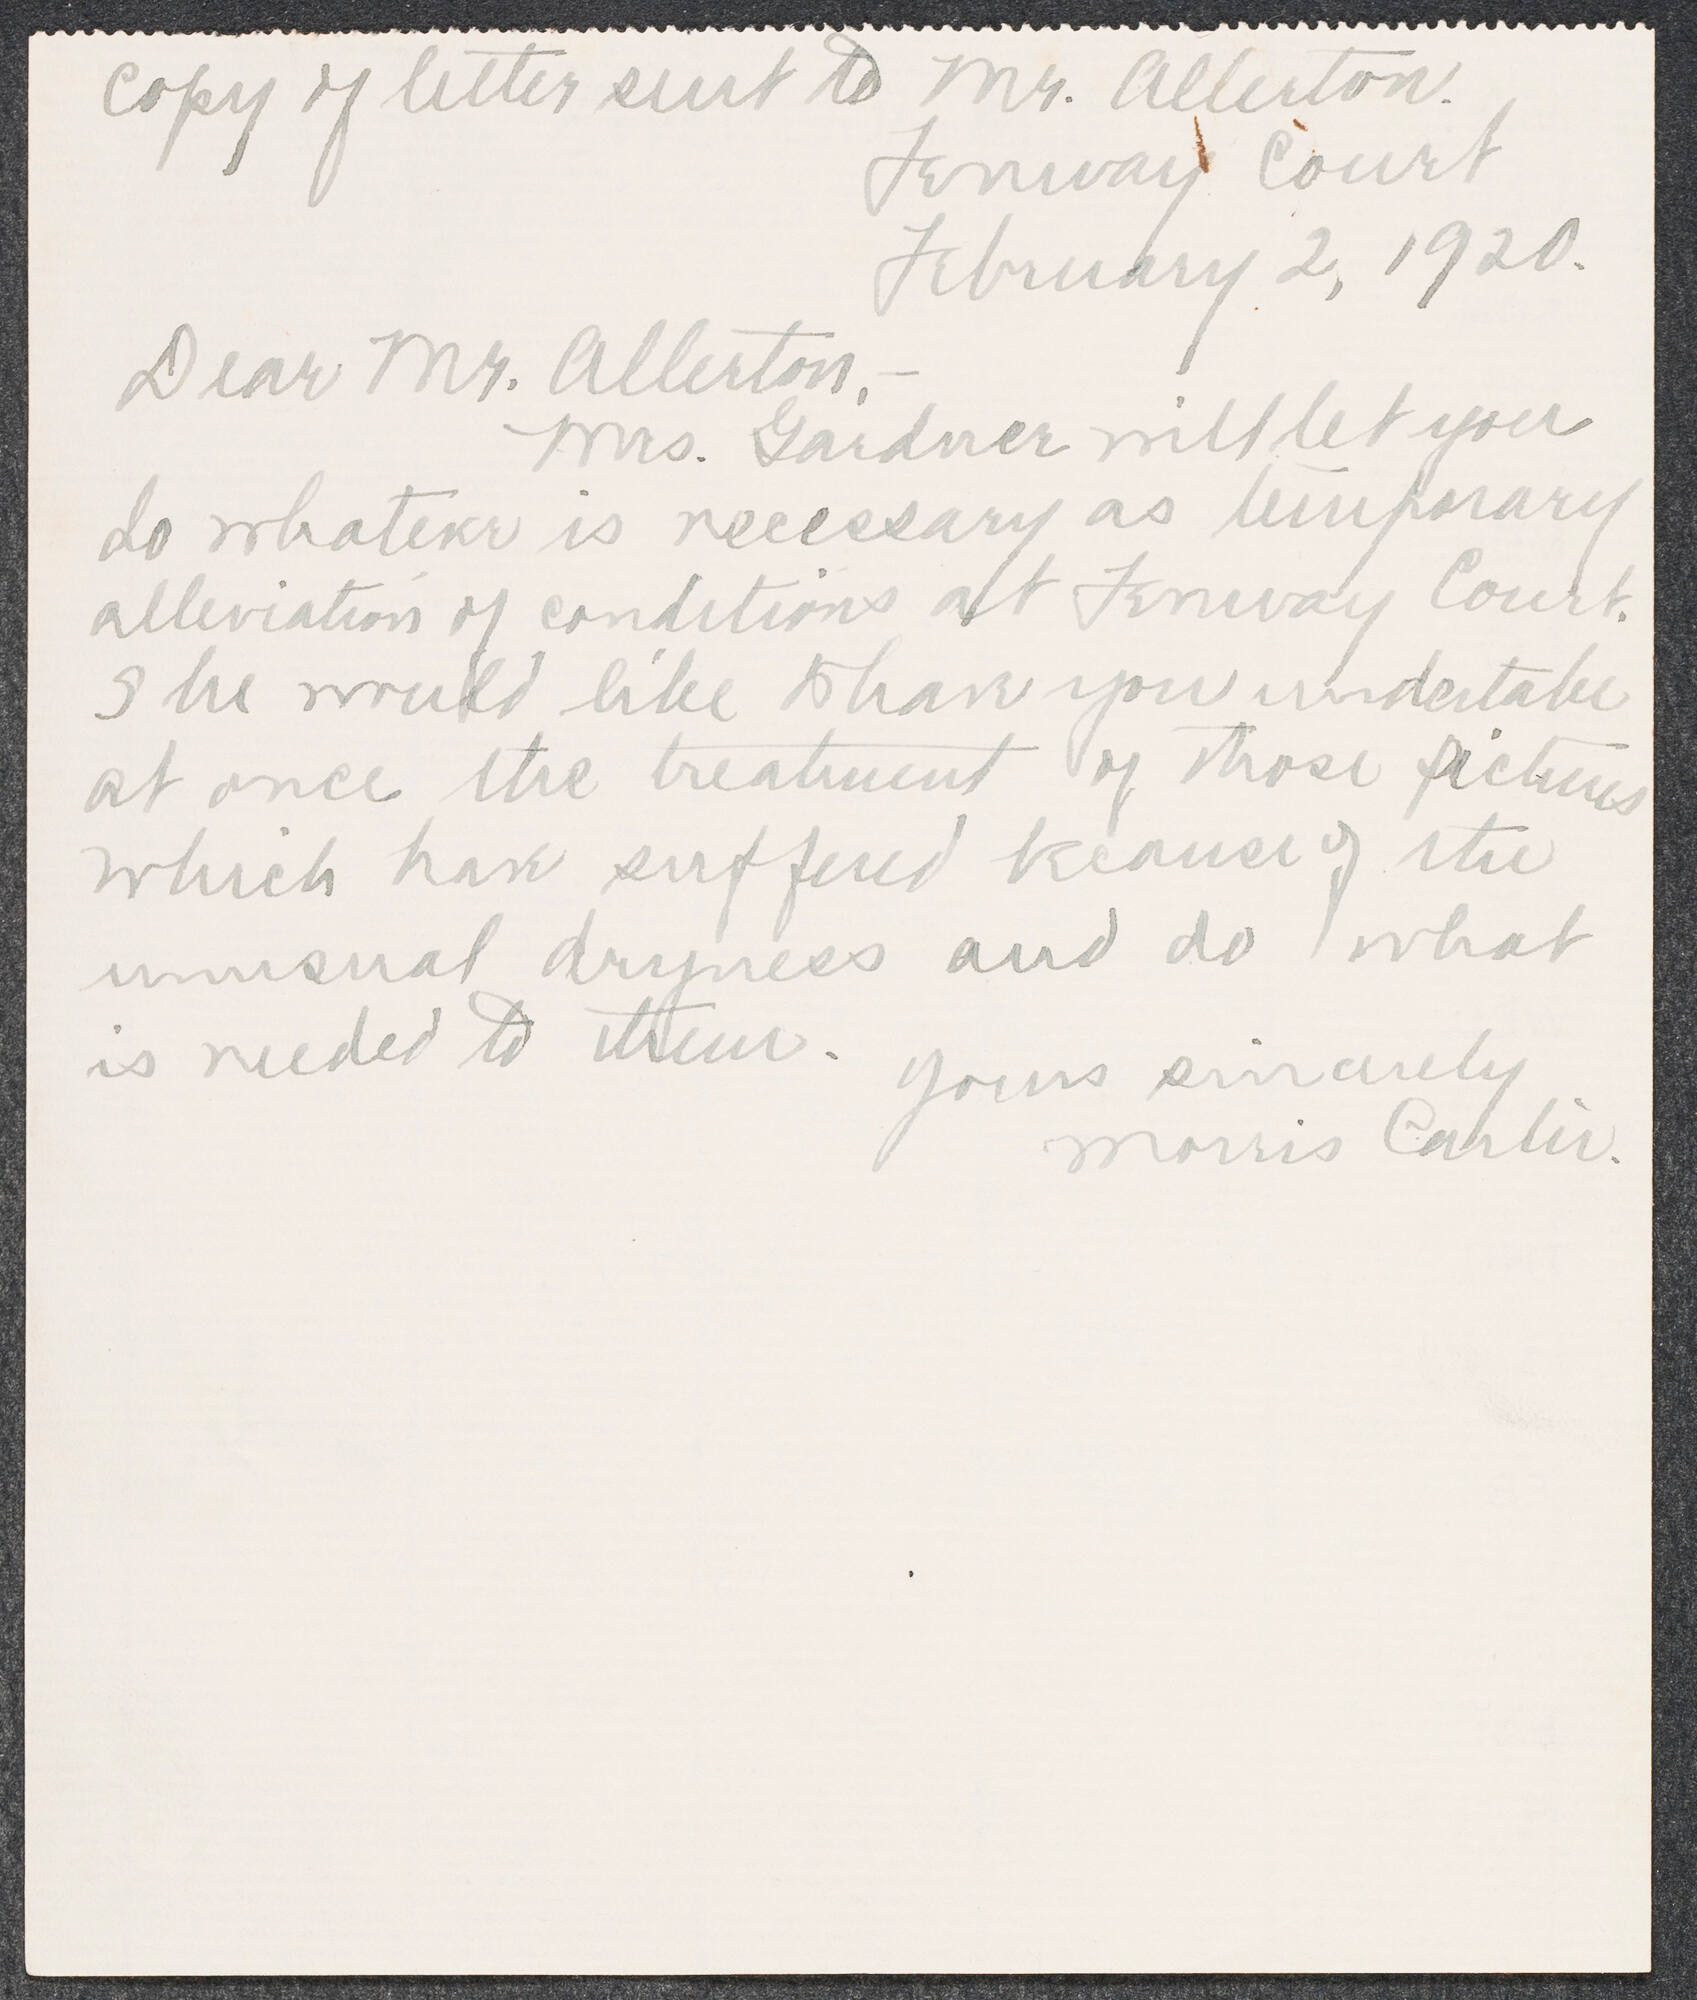 Copy of letter sent to Mr. Allerton.
Fenway Court
February 2, 1920.
Dear Mr. Allerton,-
Mrs. Gardner will let you
do whatever is necessary as temporary
alleviation of conditions at Fenway Court.
She would like to have you undertake
at once the treatment of those pictures
which have suffered because of the
unusual dryness and do what
is needed to them.
Yours sincerely
Morris Carter.